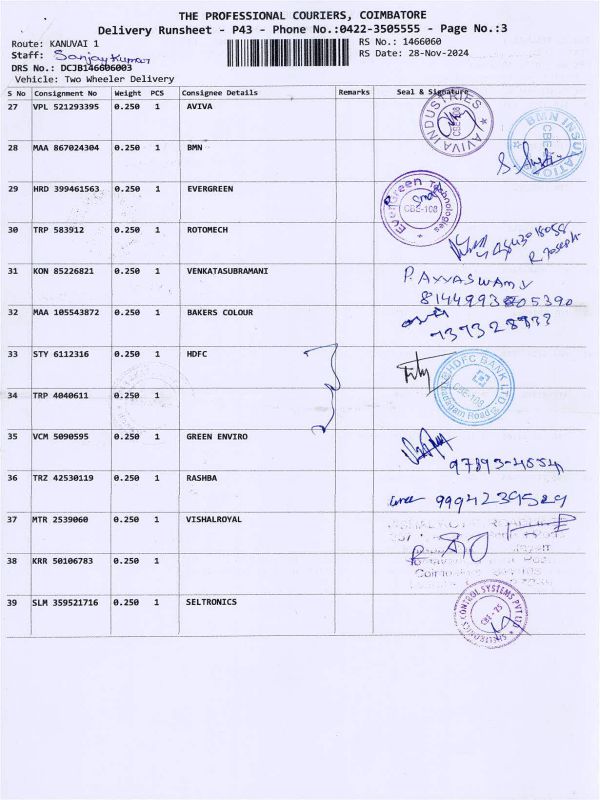 THE PROFESSIONAL COURIERS, COIMBATORE
Delivery Runsheet - P43 - Phone No.:0422-3505555 - Page No.:3
Route: KANUVAI 1 RS No.: 1466060
Staff: Sanjay Kumar RS Date: 28-Nov-2024
DRS No.: DCJB146606003
Vehicle: Two Wheeler Delivery
S No Consignment No Weight PCS Consignee Details Remarks Seal & Signature
27 VPL 521293395 0.250 1 AVIVA
AVIVA INDUSTRIES
28 MAA 867024304 0.250 1 BMN
BMN INSULATION
29 HRD 399461563 0.250 1 EVERGREEN
EverGreen Technologies
CBE-108
30 TRP 583912 0.250 1 ROTOMECH
R. Joseph
31 KON 85226821 0.250 1 VENKATASUBRAMANI
P. AYYASWAMY
32 MAA 105543872 0.250 1 BAKERS COLOUR
33 STY 6112316 0.250 1 HDFC
HDFC BANK LTD
CBE-108
34 TRP 4040611 0.250 1
35 VCM 5090595 0.250 1 GREEN ENVIRO
97893-45541
36 TRZ 42530119 0.250 1 RASHBA
9994239529
37 MTR 2539060 0.250 1 VISHALROYAL
38 KRR 50106783 0.250 1
39 SLM 359521716 0.250 1 SELTRONICS
CONTROL SYSTEMS PVT LTD
CBE-25